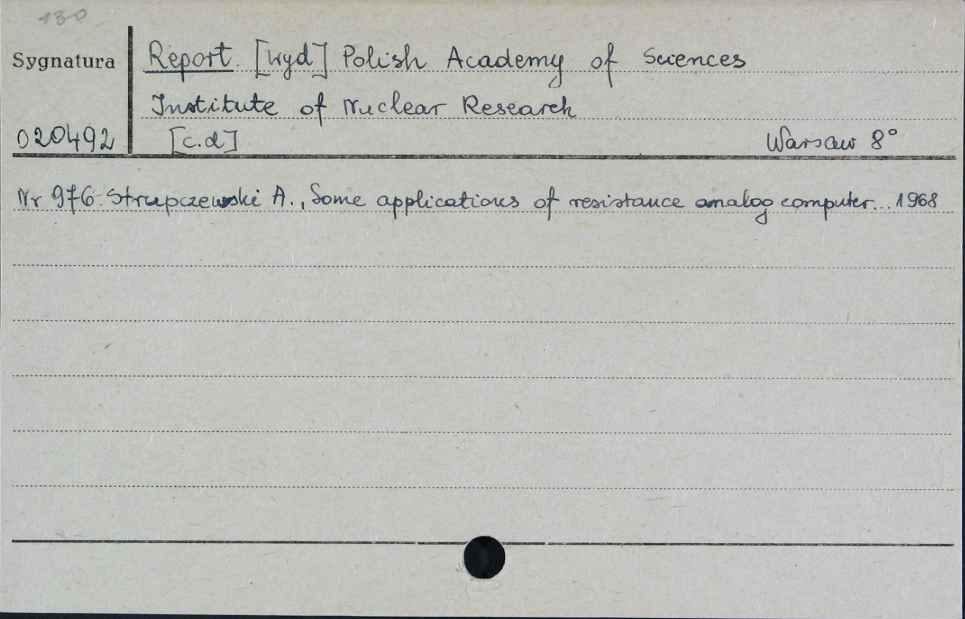 130
Sygnatura
Report. [wyd] Polish Academy of Sciences
Institute of Nuclear Research
020492 [c.d] Warsaw 8°
Nr 976. Strupczewski A., Some applications of resistance analog computer... 1968